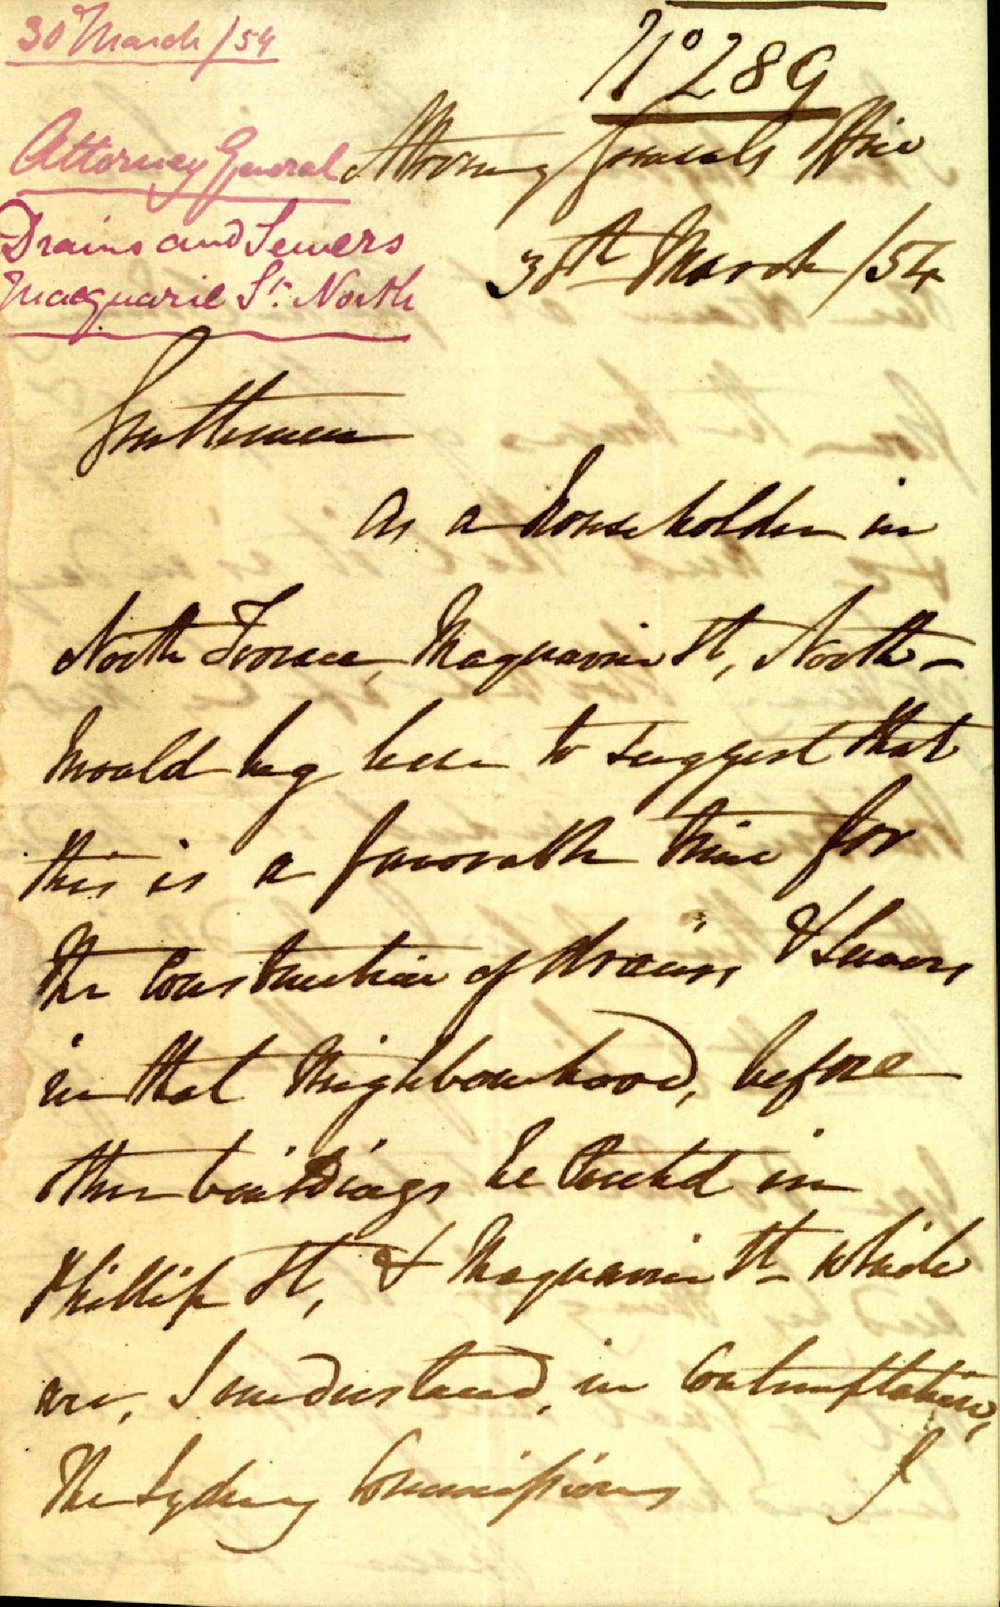 30 March/54
No 289
Attorney General
Attorney Generals Office
Drains and Sewers
Macquarie St. North
30th March /54
Gentlemen
As a householder in
North Terrace, Macquarie St, North -
Would beg leave to suggest that
this is a favorable time for
the Construction of drains & Sewers
in that Neighbourhood, before
other buildings be Erected in
Phillip St, & Macquarie St - which
are, I understand, in Contemplation,
The Sydney Commissioners
I